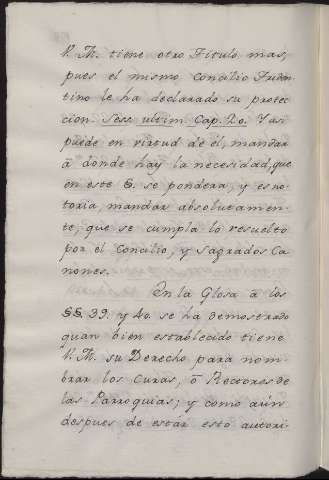 V. M. tiene otro Titulo mas,
pues el mismo Concilio Triden
tino le ha declarado su protec
cion Sess. ultim. Cap. 20. Y asi
puede en virtud de él, mandar
à donde hay la necesidad, que
en este §. se pondera, y es no-
toria, mandar absolutamen-
te, que se cumpla lo resuelto
por el Concilio, y Sagrados Ca
nones.
En la Glosa à los
§§. 39. y 40. se ha demostrado
quan bien establecido tiene
V. M. su Derecho para nom-
brar los Curas, ò Rectores de
las Parroquias; y como aùn
despues de estar esto autori-